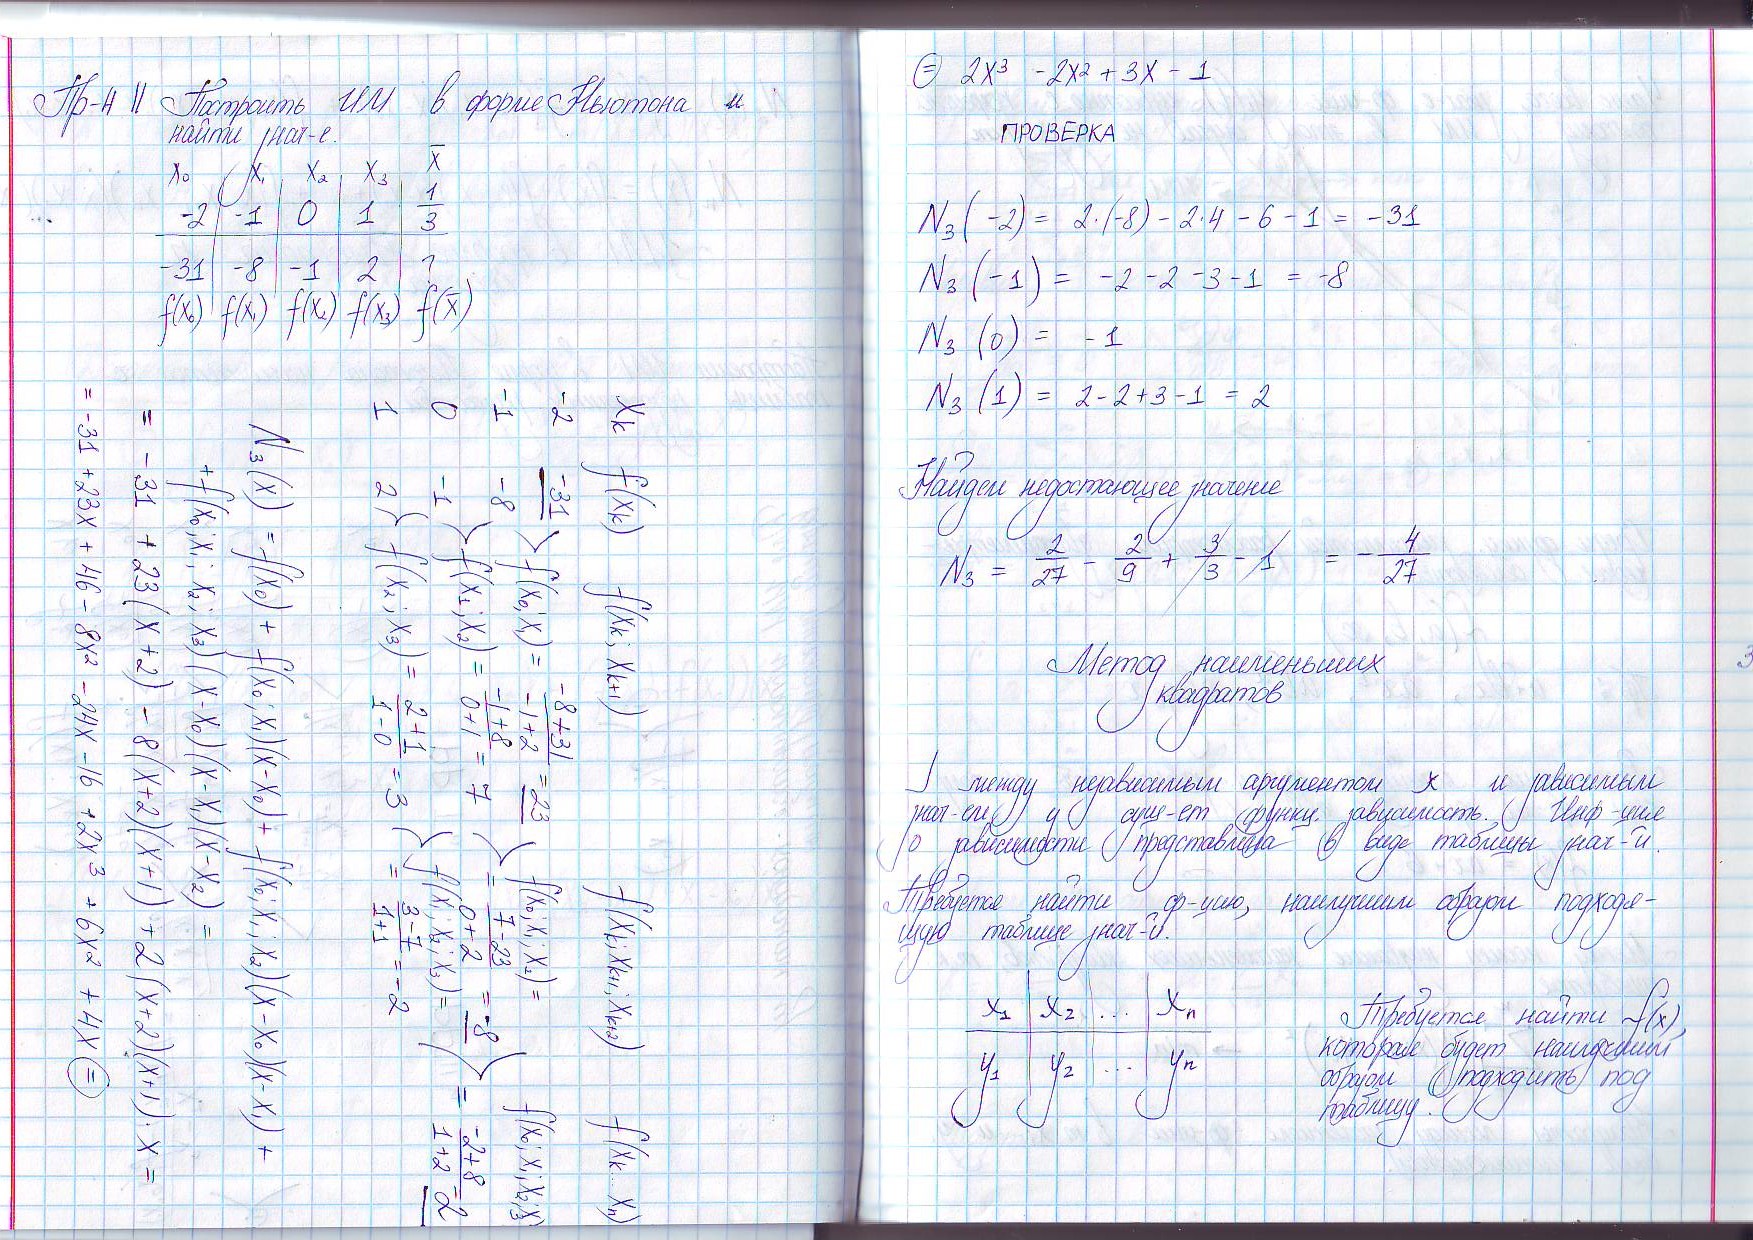 Пр-4 || Построить ИМ в форме Ньютона и
найти знач-е.
x₀ | x₁ | x₂ | x₃ | x̅
-2 | -1 | 0 | 1 | 1/3
-31 | -8 | -1 | 2 | ?
f(x₀) | f(x₁) | f(x₂) | f(x₃) | f(x̅)
xₖ f(xₖ) f(xₖ; xₖ₊₁) f(xₖ; xₖ₊₁; xₖ₊₂) f(xₖ...xₙ)
-2 -31
f(x₀; x₁) = (-8+31)/(-1+2) = 23
-1 -8 f(x₀; x₁; x₂) = (7-23)/(0+2) = -8
f(x₁; x₂) = (-1+8)/(0+1) = 7 f(x₀; x₁; x₂; x₃) = (-2+8)/(1+2) = 2
0 -1 f(x₁; x₂; x₃) = (3-7)/(1+1) = -2
f(x₂; x₃) = (2+1)/(1-0) = 3
1 2
N₃(x) = f(x₀) + f(x₀; x₁)(x-x₀) + f(x₀; x₁; x₂)(x-x₀)(x-x₁) +
+ f(x₀; x₁; x₂; x₃)(x-x₀)(x-x₁)(x-x₂) =
= -31 + 23(x+2) - 8(x+2)(x+1) + 2(x+2)(x+1)·x =
= -31 + 23x + 46 - 8x² - 24x - 16 + 2x³ + 6x² + 4x ⊜
⊜ 2x³ - 2x² + 3x - 1
ПРОВЕРКА
N₃(-2) = 2·(-8) - 2·4 - 6 - 1 = -31
N₃(-1) = -2 - 2 - 3 - 1 = -8
N₃(0) = -1
N₃(1) = 2 - 2 + 3 - 1 = 2
Найдем недостающее значение
N₃ = 2/27 - 2/9 + 3/3 - 1 = - 4/27
Метод наименьших
квадратов
] между независимым аргументом x и зависимым
знач-ем y сущ-ет функц. зависимость. Инф-ция
о зависимости представлена в виде таблицы знач-й.
Требуется найти ф-цию, наилучшим образом подходя-
щую таблице знач-й.
x₁ | x₂ | ... | xₙ
y₁ | y₂ | ... | yₙ
Требуется найти f(x),
которая будет наилучшим
образом подходить под
таблицу.